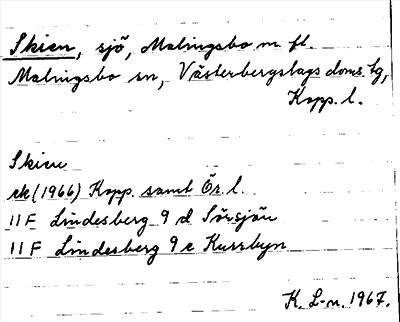 Skien, sjö, Malingsbo m fl.
Malingsbo sn, Västerbergslags doms. tg,
Kopp. l.
Skien
rk (1966) Kopp. samt Ör. l.
11 F Lindesberg 9 d Sörsjön
11 F Lindesberg 9 e Kursbyn
K. L-n. 1967.